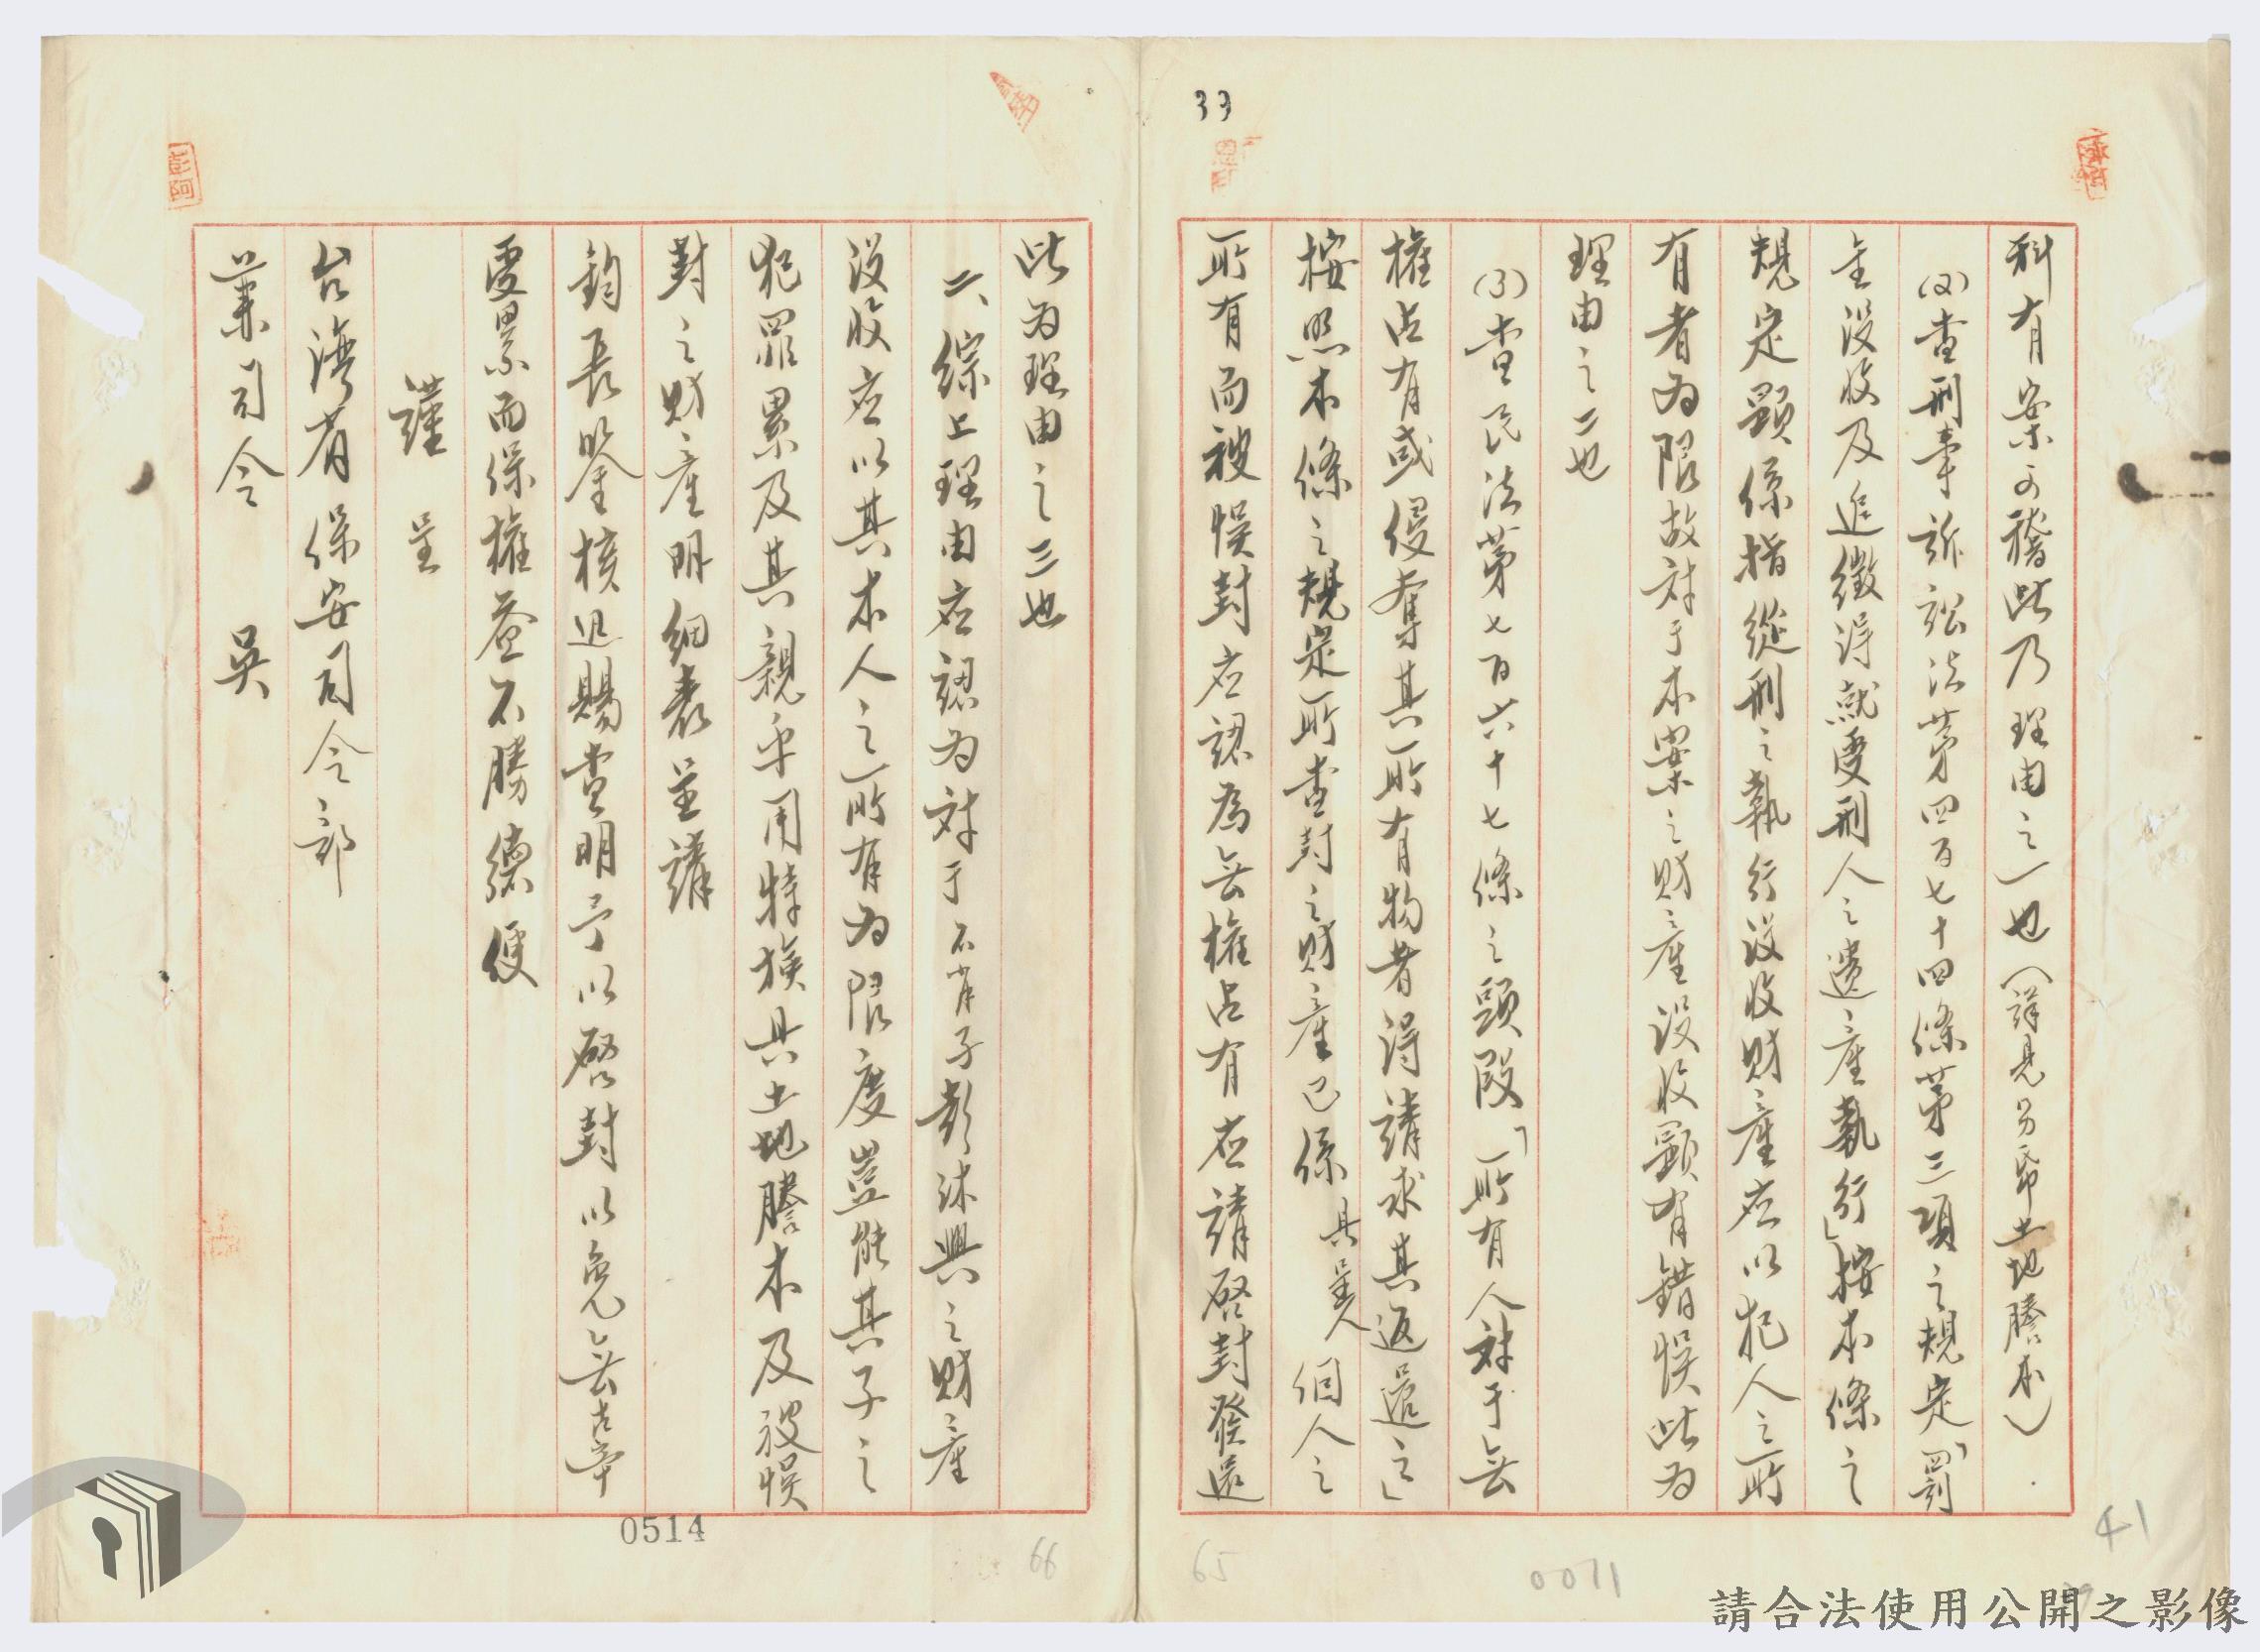 33
科有案可稽此乃理由之一也(詳見另帋土地謄本)
(2)查刑事訴訟法第四百七十四條第三項之規定「罰
金沒收及追徵得就受刑人之遺產執行」按本條之
規定顕係指從刑之執行沒收財產应以犯人之所
有者为限故对于本案之財產沒收顕有錯悮此为
理由之二也
(3)查民法第七百六十七條之頭段「所有人对于無
權占有或侵奪其所有物者得請求其返還之」
按照本條之規定所查封之財產已係具呈人個人之
所有而被悮封应認為無權占有应請啓封發還
此为理由之三也
二、綜上理由应認为对于不肖子彭沐興之財產
沒收应以其本人之所有为限度豈能其子之
犯罪累及其親乎用特撿具土地謄本及被悮
封之財產明細表呈請
鈞長鑒核迅賜查明予以啓封以免無辜
受累而保權益不勝德便
謹呈
台湾省保安司令部
兼司令 吳
彭阿
0514
66
65
0071
41
請合法使用公開之影像